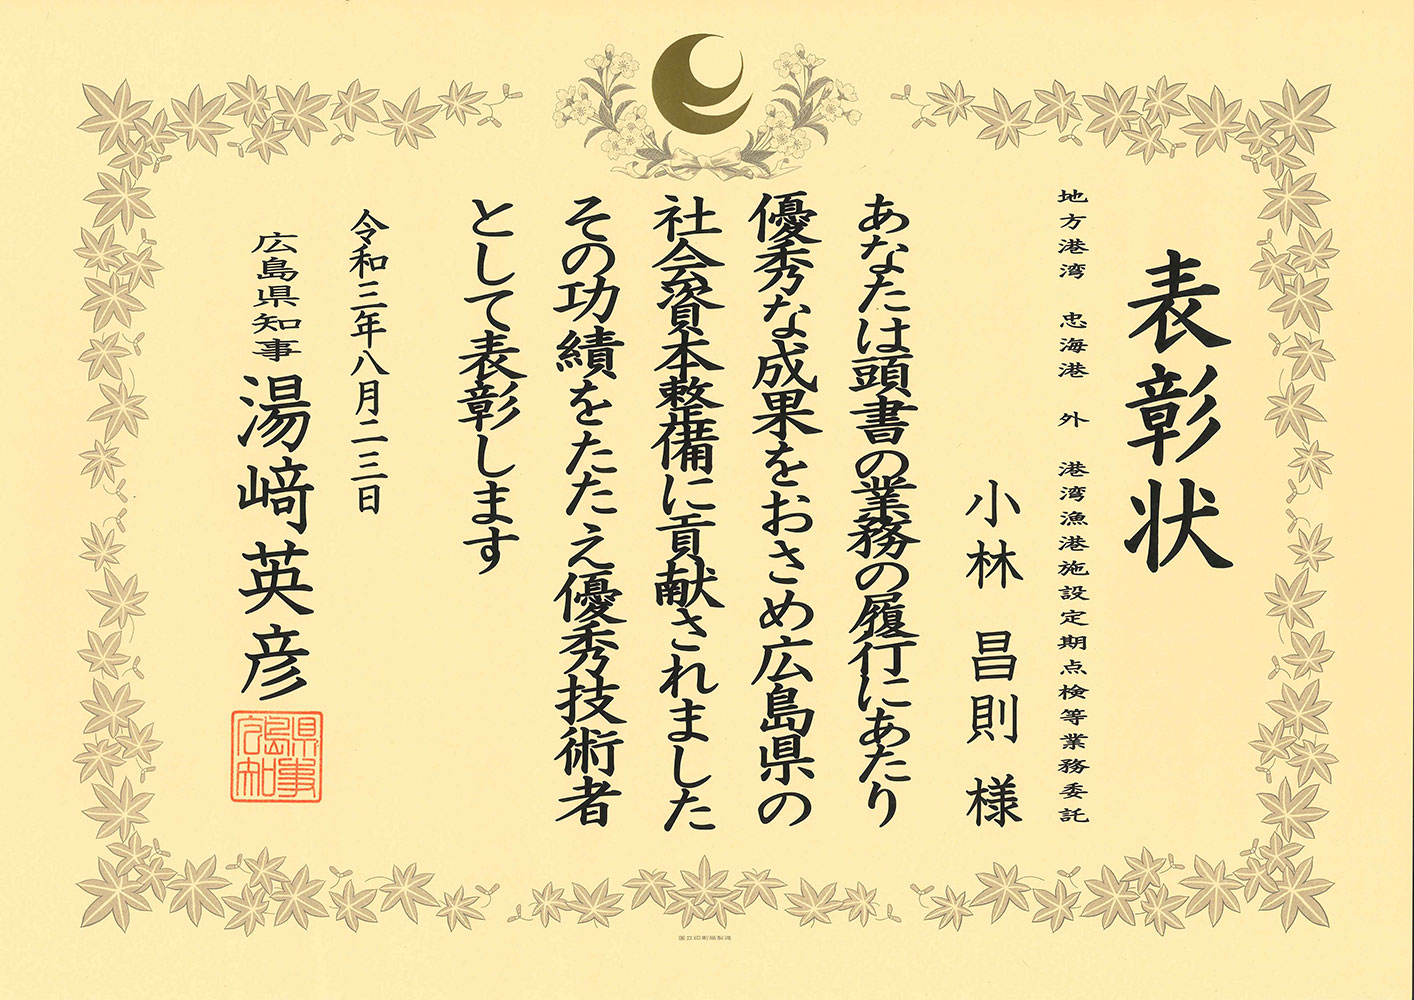 表彰状
地方港湾 忠海港 外 港湾漁港施設定期点検等業務委託
小林 昌則 様
あなたは頭書の業務の履行にあたり
優秀な成果をおさめ広島県の
社会資本整備に貢献されました
その功績をたたえ優秀技術者
として表彰します
令和三年八月二三日
広島県知事 湯﨑英彦
広島県知事
国立印刷局製造